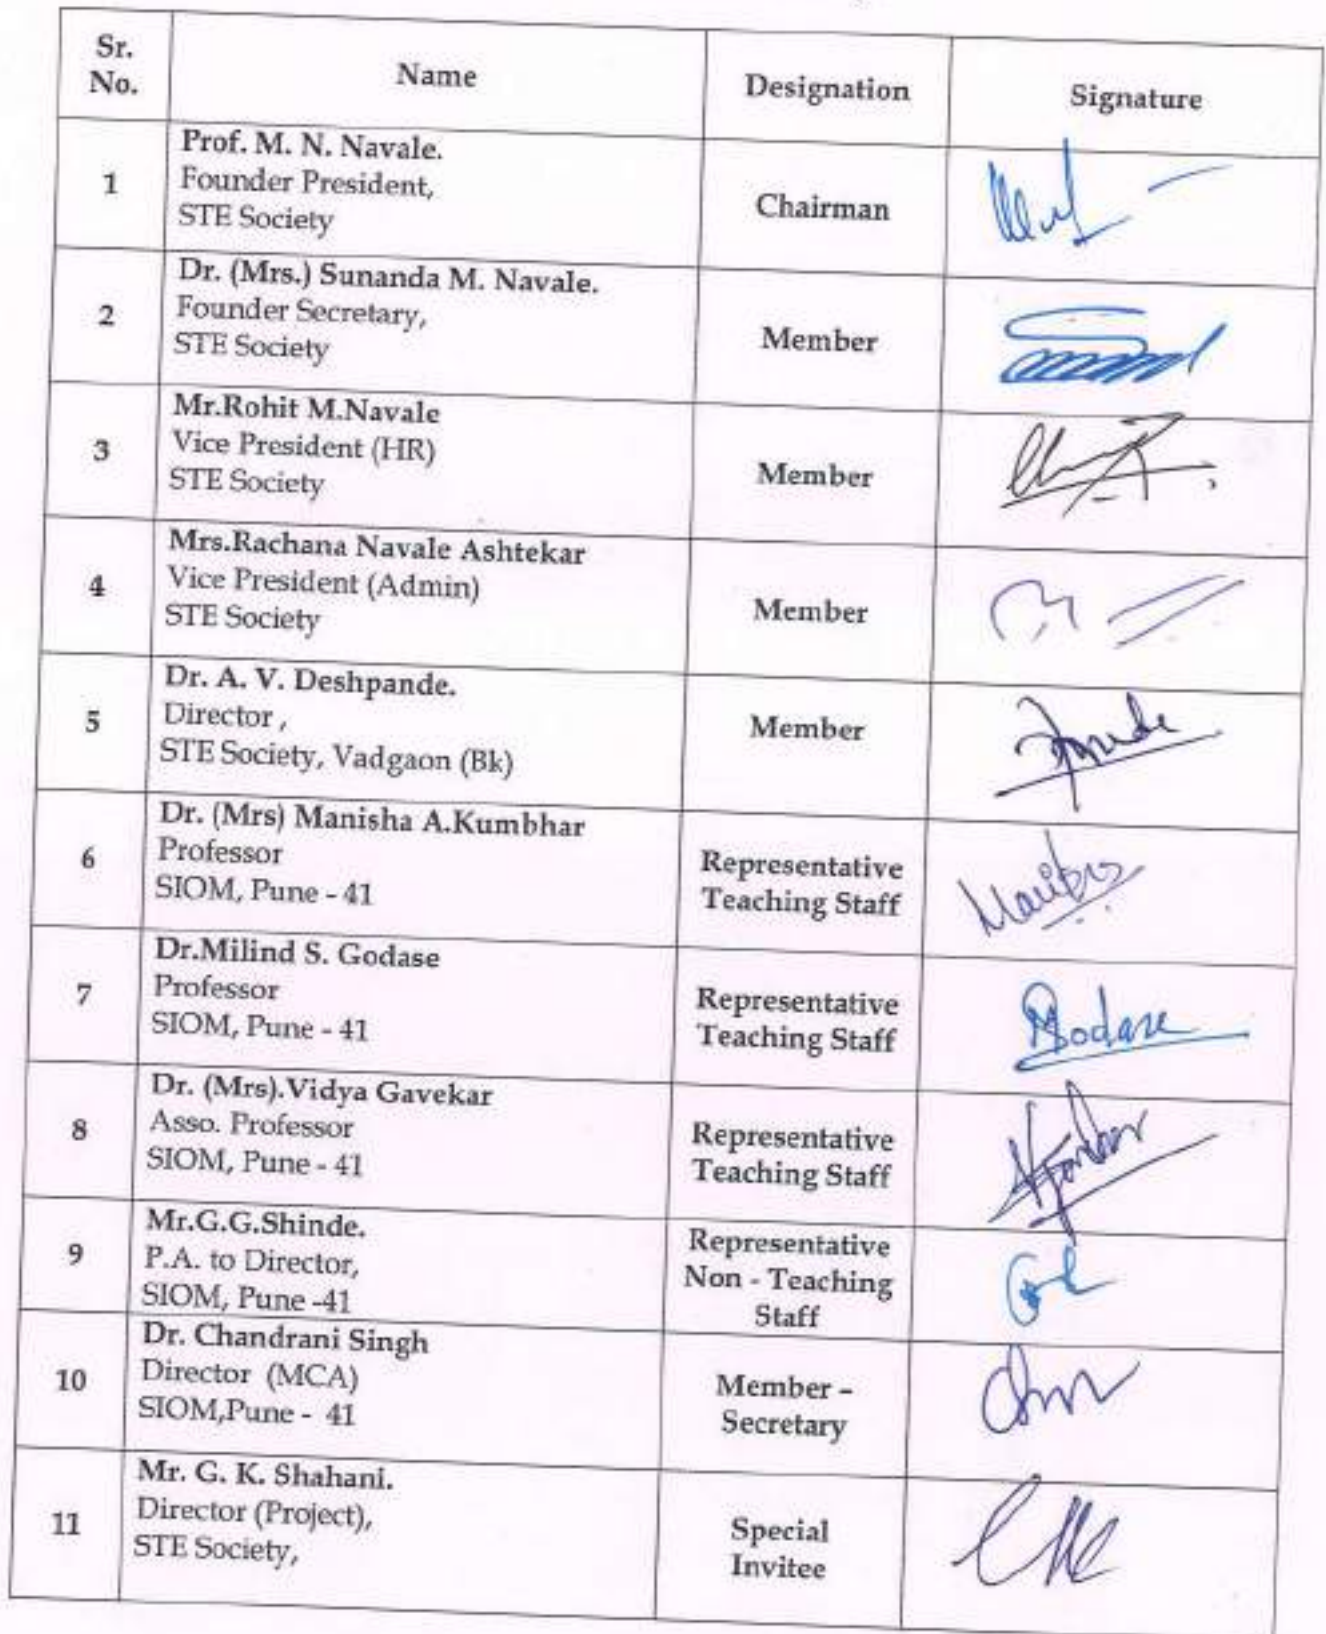 Sr. No.
Name
Designation
Signature
1
Prof. M. N. Navale.
Founder President,
STE Society
Chairman
2
Dr. (Mrs.) Sunanda M. Navale.
Founder Secretary,
STE Society
Member
3
Mr.Rohit M.Navale
Vice President (HR)
STE Society
Member
4
Mrs.Rachana Navale Ashtekar
Vice President (Admin)
STE Society
Member
5
Dr. A. V. Deshpande.
Director ,
STE Society, Vadgaon (Bk)
Member
6
Dr. (Mrs) Manisha A.Kumbhar
Professor
SIOM, Pune - 41
Representative
Teaching Staff
7
Dr.Milind S. Godase
Professor
SIOM, Pune - 41
Representative
Teaching Staff
Godase
8
Dr. (Mrs).Vidya Gavekar
Asso. Professor
SIOM, Pune - 41
Representative
Teaching Staff
9
Mr.G.G.Shinde.
P.A. to Director,
SIOM, Pune -41
Representative
Non - Teaching
Staff
10
Dr. Chandrani Singh
Director (MCA)
SIOM,Pune - 41
Member –
Secretary
11
Mr. G. K. Shahani.
Director (Project),
STE Society,
Special
Invitee